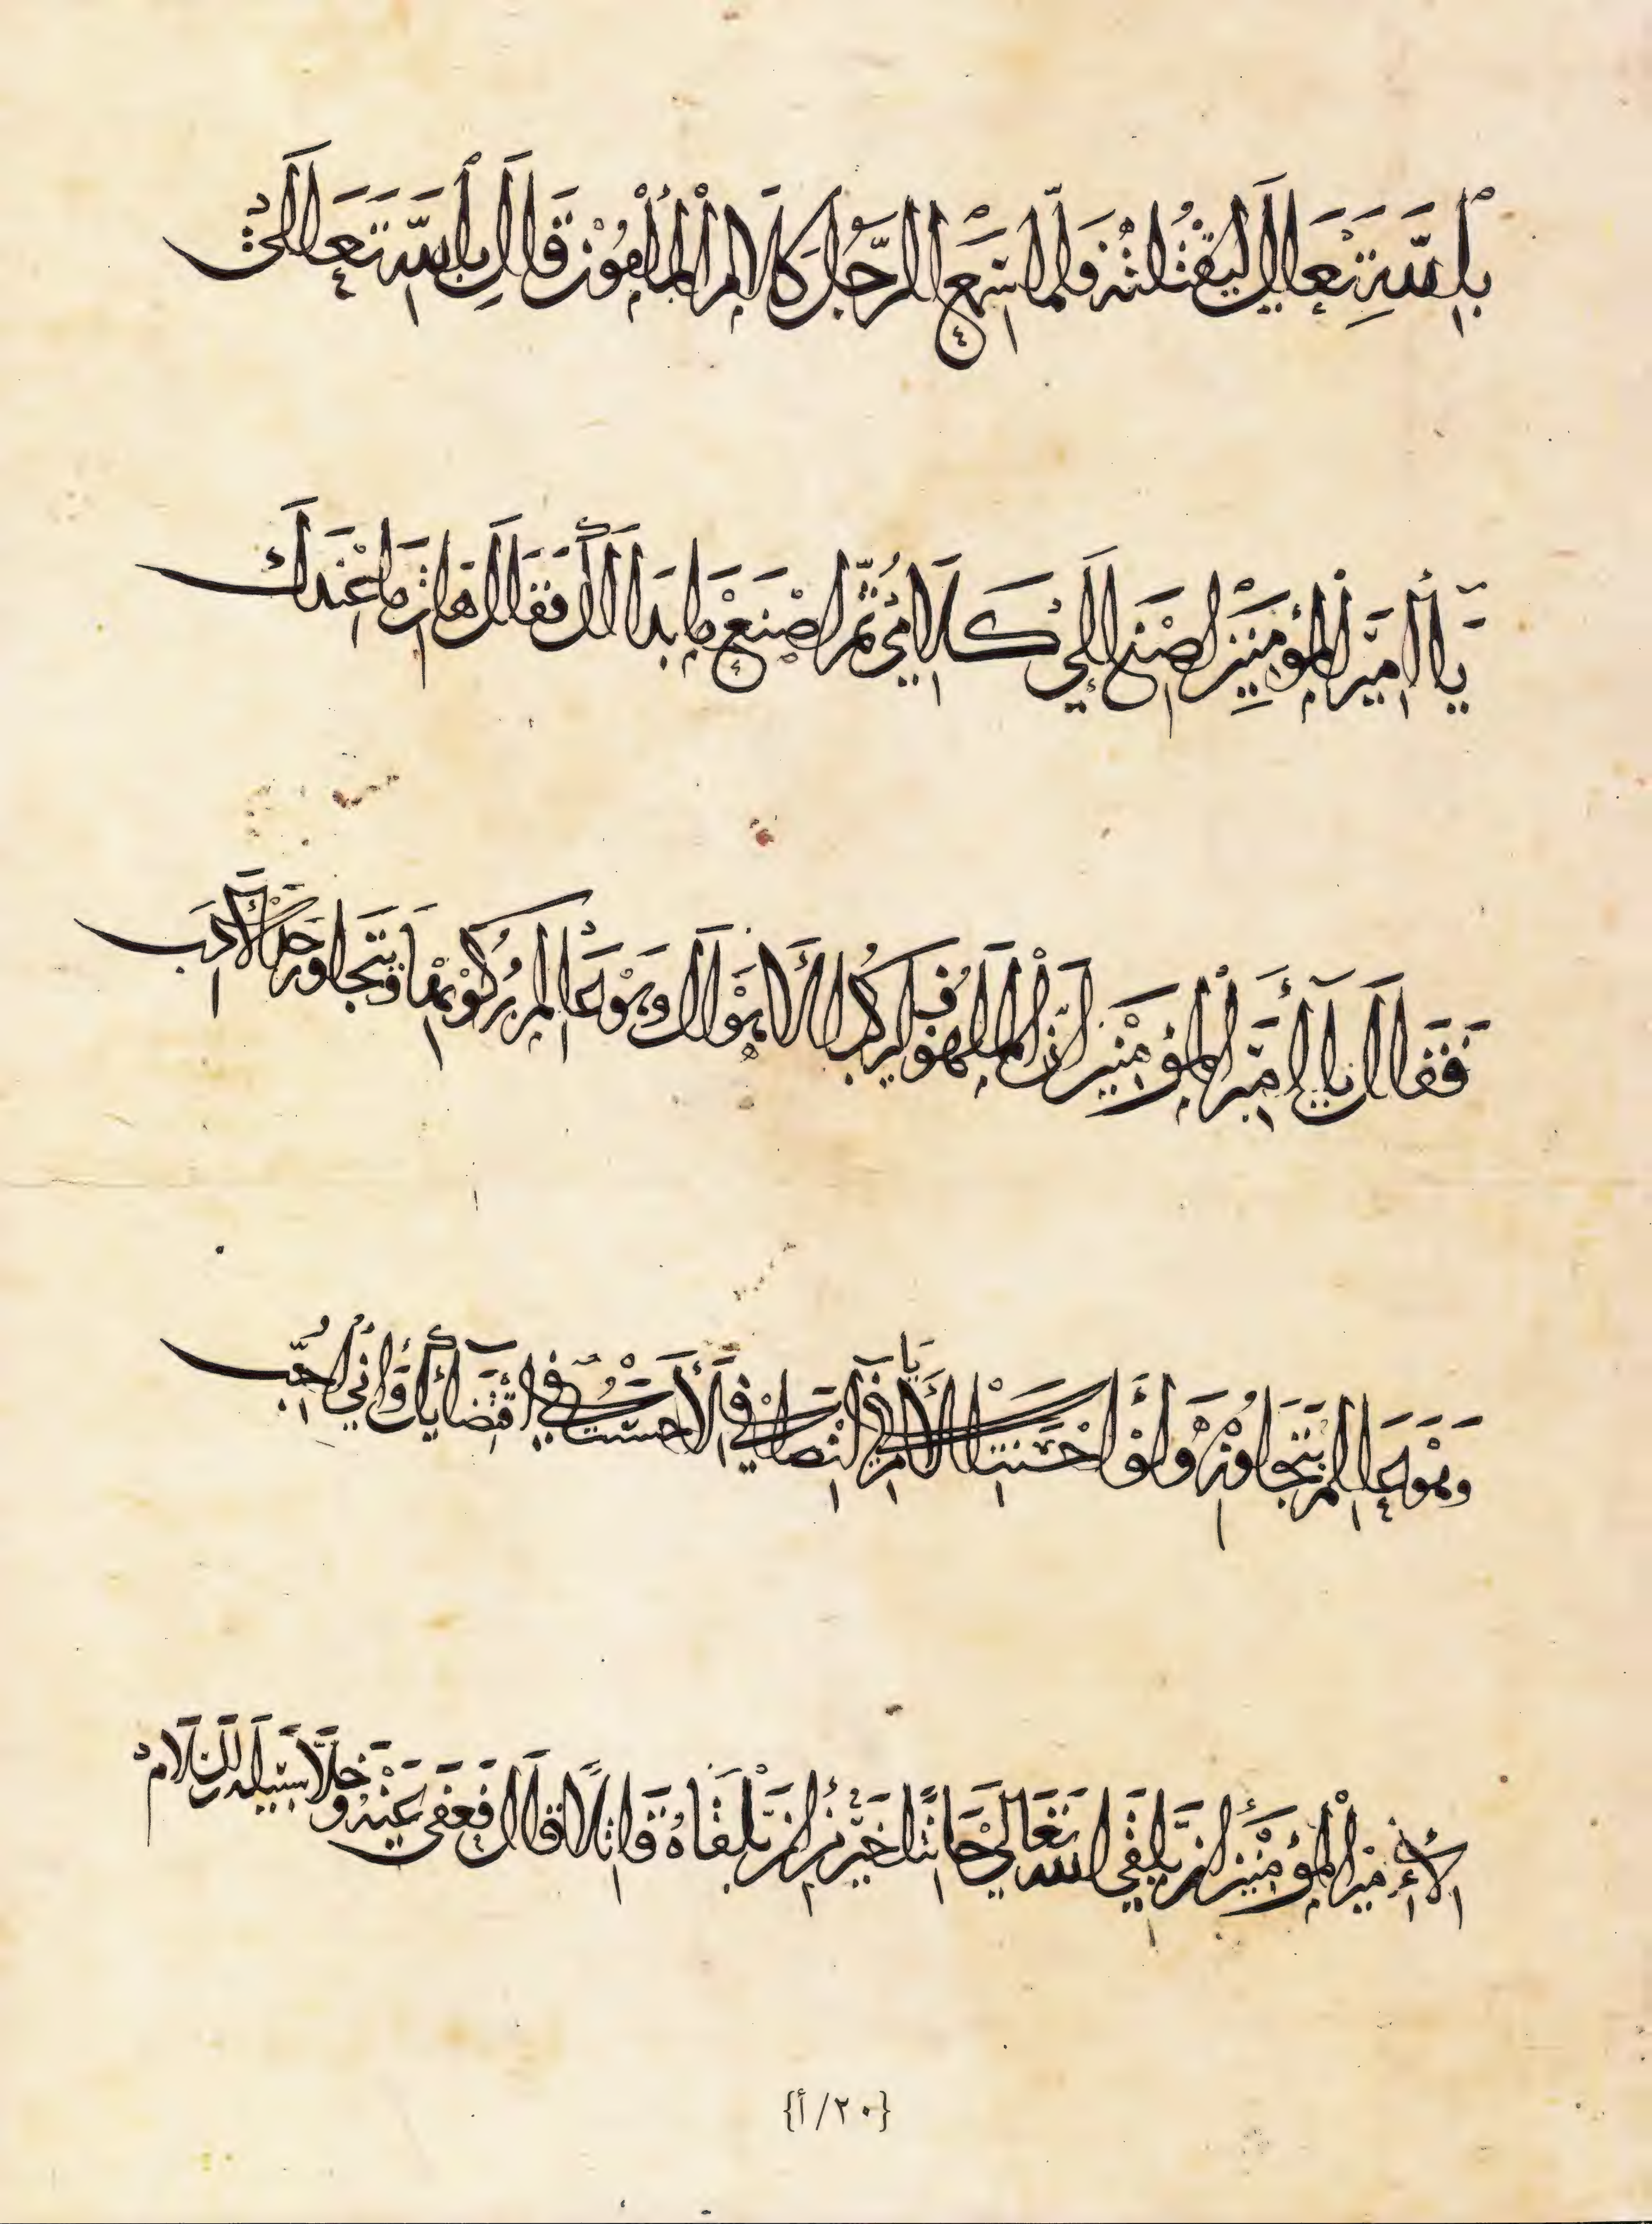 بالله تعالى ليقتلنه فلما سمع الرجل كلام المأمون قال بالله تعالى
يا أمير المؤمنين اصنع إلى كلامي ثم اصنع ما بدا لك فقال هات ما عندك
فقال يا أمير المؤمنين إن الملهوف يركب الأهوال وهو عالم بركوبها وتتجاوز حد الأدب
وهو عالم بتجاوزه ولو أحسنت الأيام في إنصافي لأحسنت في اقتضائك وإني أحب
لأمير المؤمنين أن يلقى الله تعالى حانثا خير من أن يلقاه قاتلا قال فعفى عنه وخلا سبيله
{٢٠/أ}